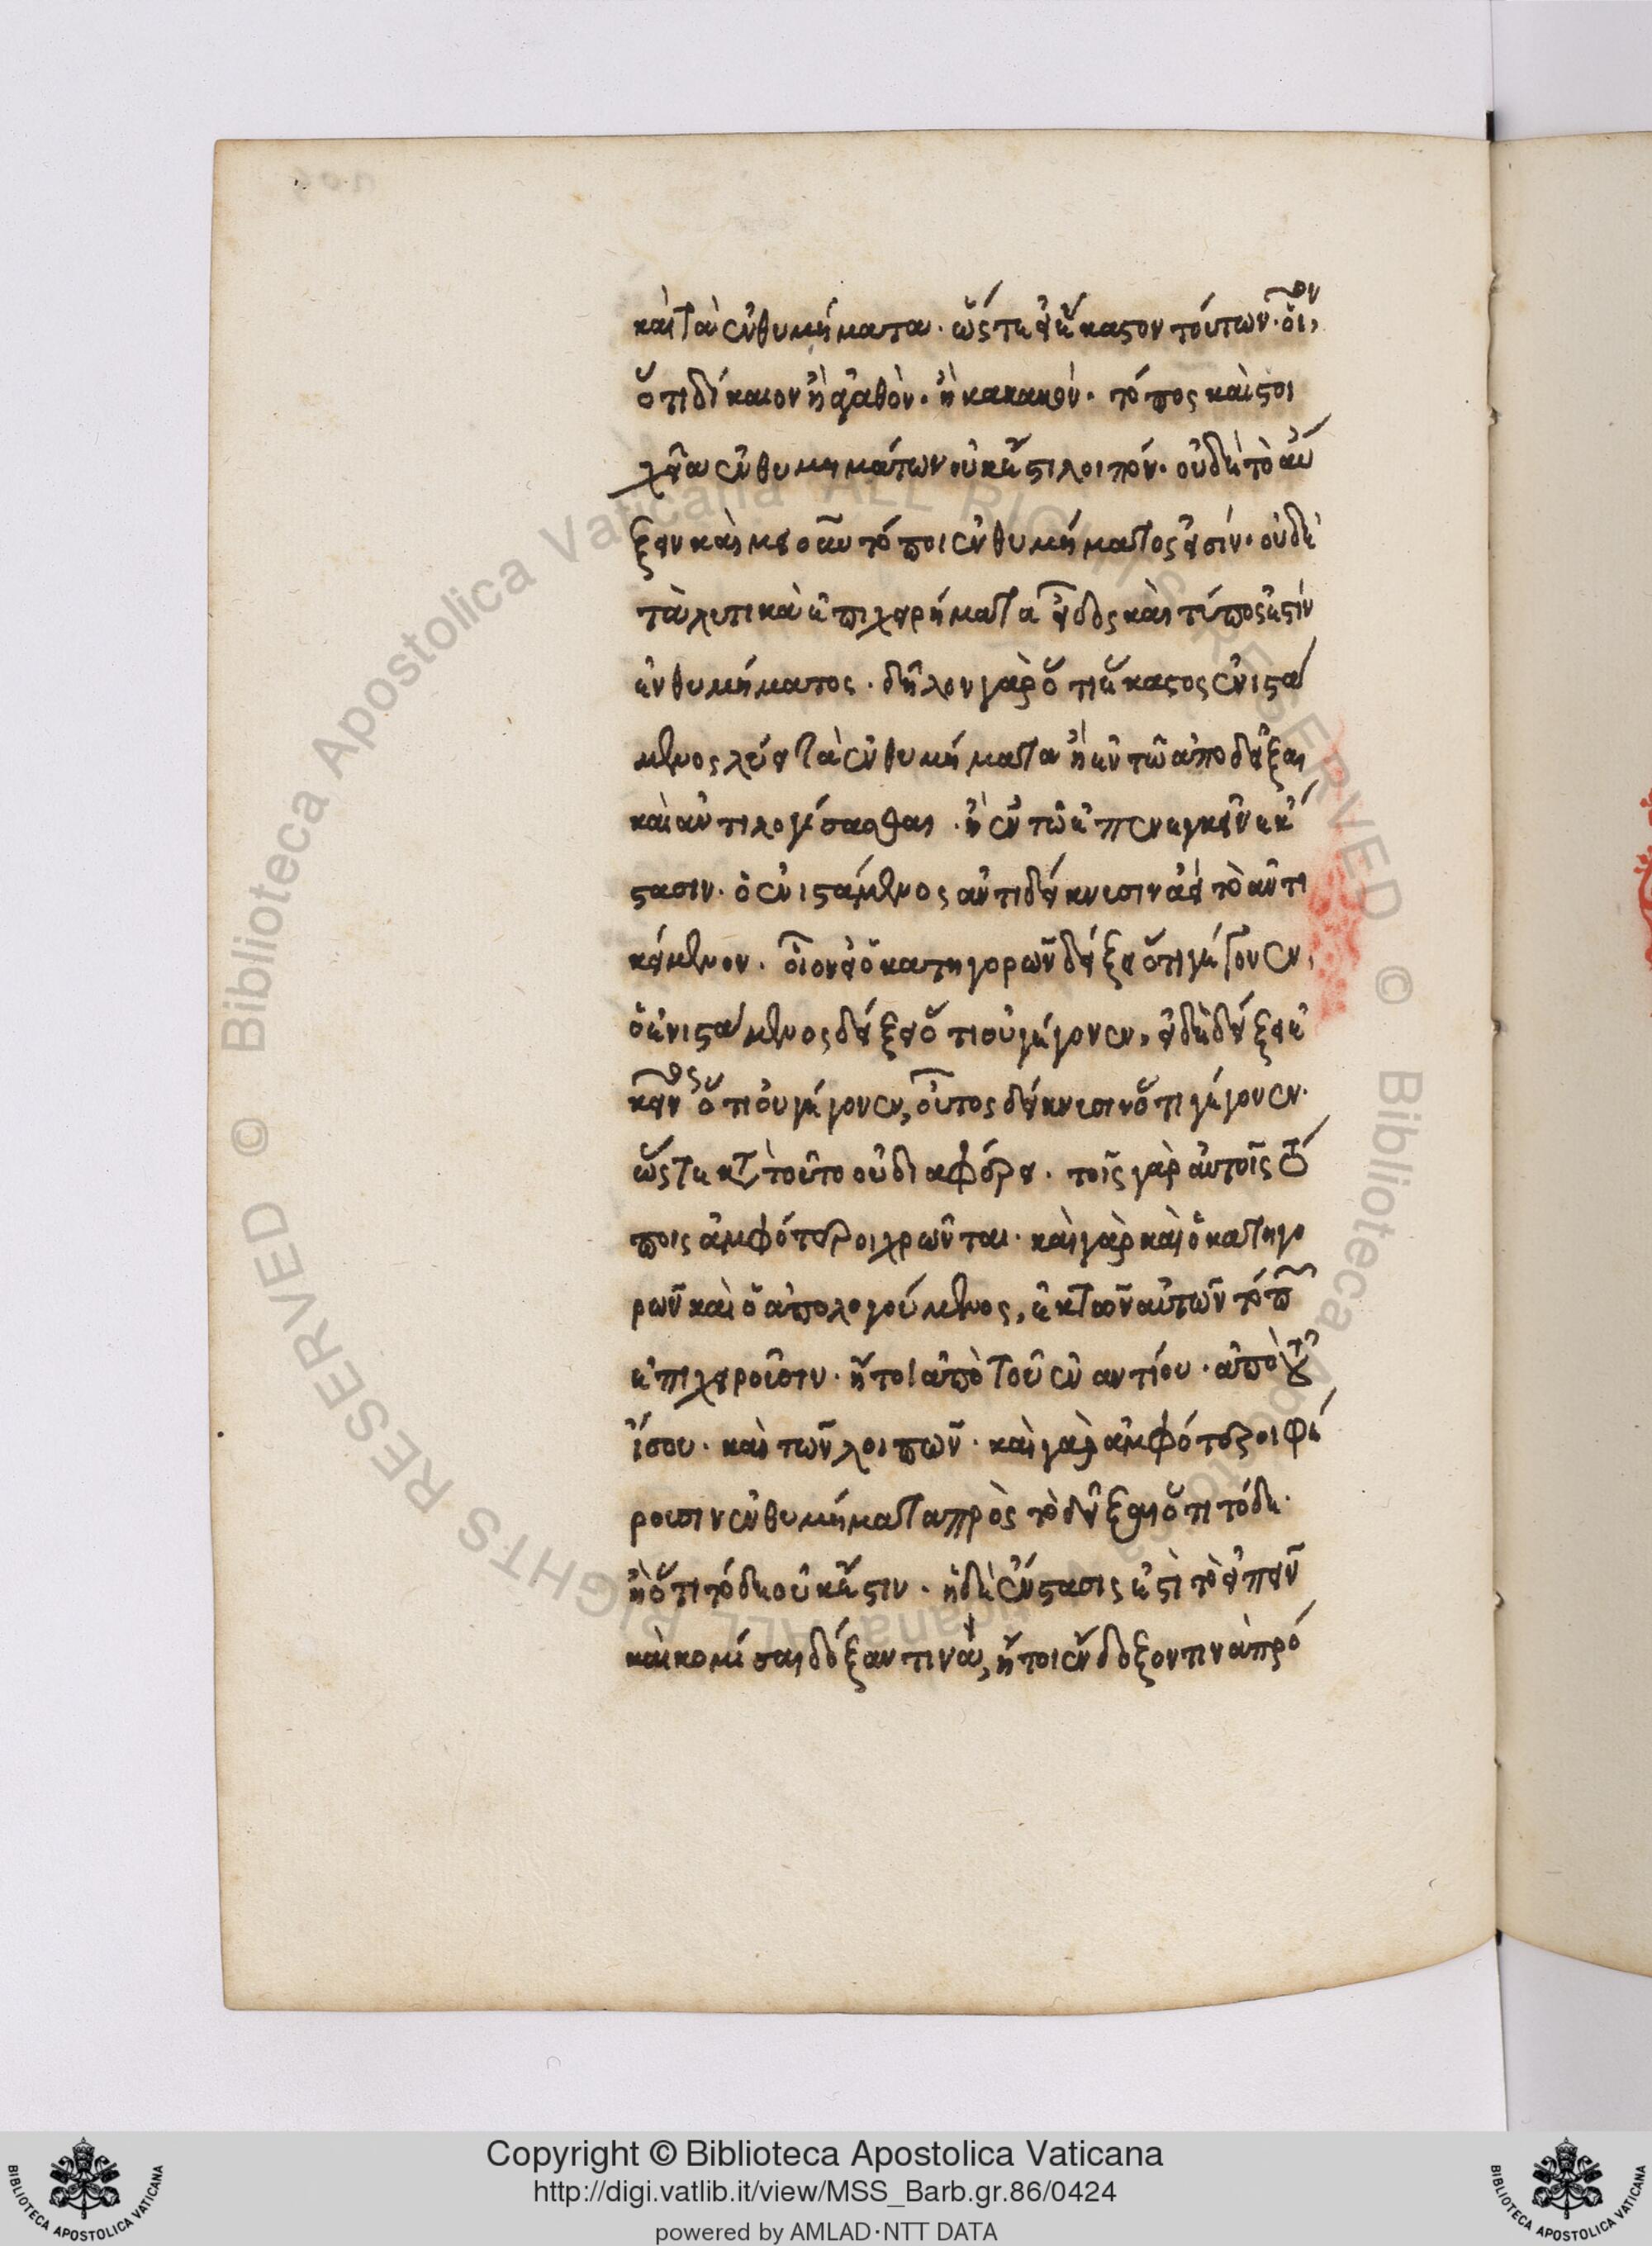 καὶ τὰ ἐνθυμήματα. ὥστε εἰ ἕκαστον τούτων. οἷον,
ὅτι δίκαιον ἢ ἀγαθὸν. ἢ κακακὸν. τόπος καὶ στοι
χεῖα ἐνθυμημάτων οὐκ ἔστι λοιπόν. οὐδὲ τὸ αὔ
ξειν καὶ μειοῦν τόποι ἐνθυμήματος εἰσίν. οὐδὲ
τὰ λυτικὰ ἐπιχειρήματα εἶδος καὶ τύπος ἐστὶν
ἐνθυμήματος. δῆλον γὰρ ὅτι ἕκαστος ἐνιστά
μενος λύει τὰ ἐνθυμήματα ἢ ἐν τῶ ἀποδεῖξαι
καὶ ἀντιλογίσασθαι. ἢ ἐν τῶ ἐπενεγκεῖν ἔν
στασιν. ὁ ἐνιστάμενος ἀντιδείκνυσιν ἀεὶ τὸ ἀντι
κείμενον. οἷον εἰ ὁ κατηγορῶν δείξει ὅτι γέγονεν,
ὁ ἐνιστάμενος δείξει ὅτι οὐ γέγονεν, εἰ δὲ δείξει ἐ
κεῖνος ὅτι οὐ γέγονεν, οὗτος δείκνυσιν ὅτι γέγονεν.
ὥστε κατὰ τοῦτο οὐ διαφέρει. τοῖς γὰρ αὐτοῖς τό
ποις ἀμφότεροι χρῶνται. καὶ γὰρ καὶ ὁ κατηγο
ρῶν καὶ ὁ ἀπολογούμενος, ἐκ τῶν αὐτῶν τόπων
ἐπιχειροῦσιν. ἤτοι ἀπὸ τοῦ ἐναντίου. ἀπὸ τοῦ
ἴσου. καὶ τῶν λοιπῶν. καὶ γὰρ ἀμφότεροι φέ
ρουσιν ἐνθυμήματα πρὸς τὸ δεῖξαι ὅτι τόδε.
ἢ ὅτι τόδε οὐκ ἔστιν. ἡ δὲ ἔνστασις ἐστὶ τὸ εἰπεῖν
καὶ κομίσαι δόξαν τινά, ἤτοι ἔνδοξον τινὰ πρό
Copyright © Biblioteca Apostolica Vaticana
http://digi.vatlib.it/view/MSS_Barb.gr.86/0424
powered by AMLAD·NTT DATA